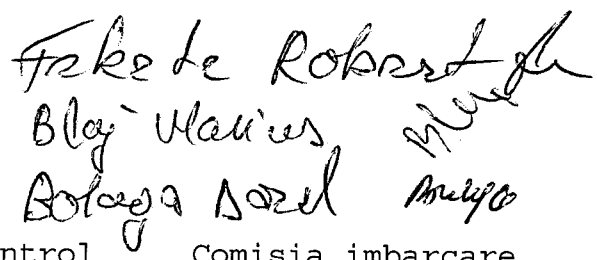 Fekete Robert
Blaj Marius
Bolaga Dorel
ntrol Comisia imbarcare